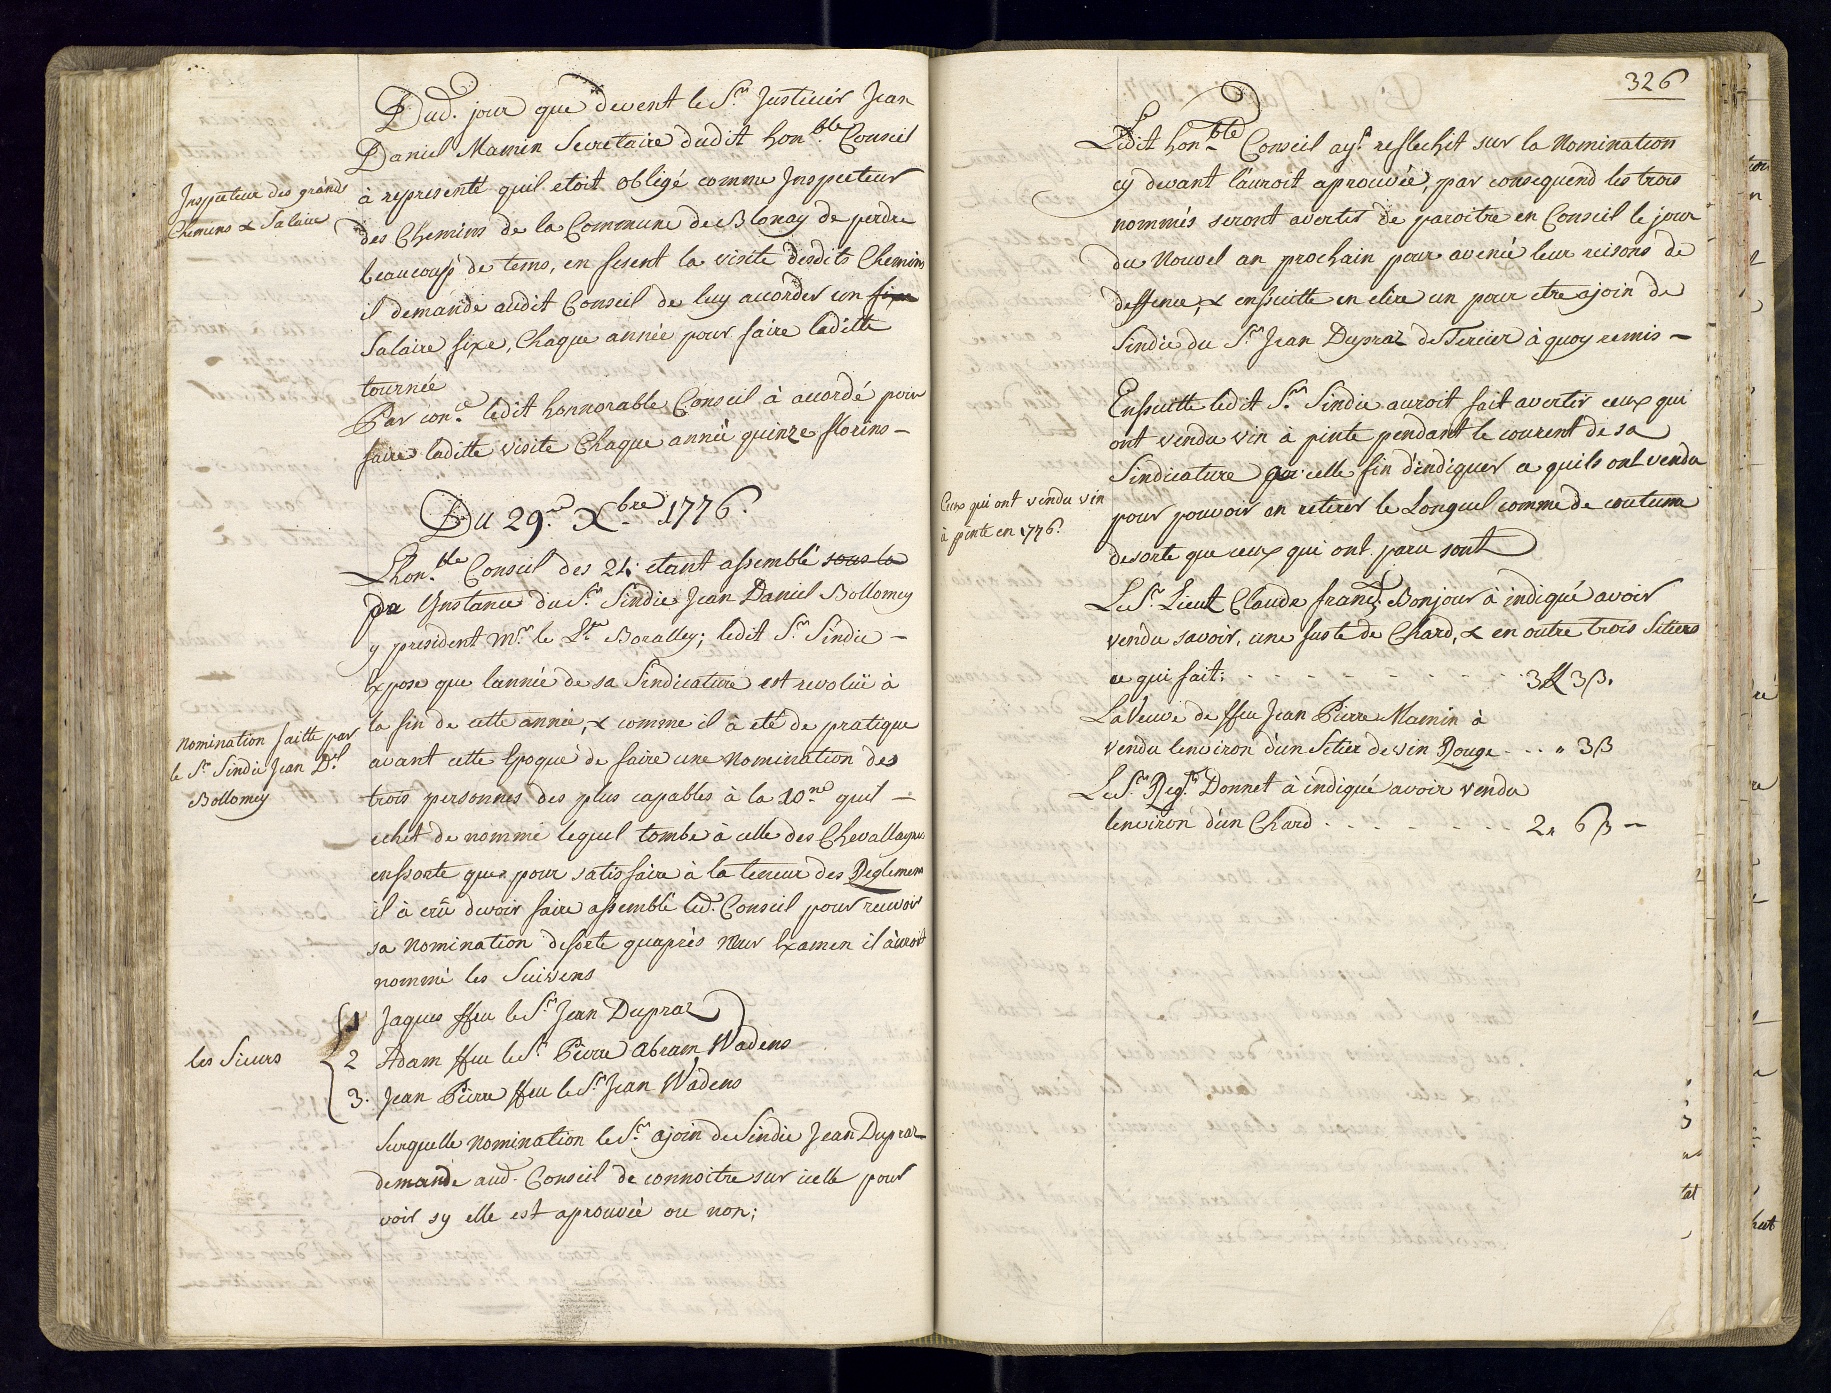 Dud. jour que devent le Sr. Justicier Jean
Daniel Mamin Secretaire dudit honble. Conseil
Inspecteur des grands
Chemins & Salaire
à representé quil etoit obligé comme Inspecteur
des Chemins de la Commune de Blonay de perdre
beaucoup de tems, en fesent la visite desdits Chemins
il demande audit Conseil de luy accorder un fixe
Salaire fixe, Chaque année pour faire laditte
tournée
Par conce. ledit honnorable Conseil à accordé pour
faire laditte visite Chaque année quinze florins –
Du 29me. Xbre 1776.
Lhonble. Conseil des 24. etant assemblé sous la
pr Ynstance du Sr. Sindic Jean Daniel Bollomey
y president Mr. le Boralley; ledit Sr. Sindic –
Expose que l'année de sa Sindicature est revolüe à
la fin de cette année, & comme il à eté de pratique
Nomination faitte par
le Sr. Sindic Jean Dl.
Bollomey
avant cette Epoque de faire une Nomination des
trois personnes des plus capables à la 10ne quil –
echet de nommé lequel tombe à celle des Chevallayres
enssorte que pour satisfaire à la teneur des Reglemens
il à crû devoir faire assemblé led. Conseil pour recevoir
sa Nomination desorte quaprès meur Examen il àuroit
nommé les Suivens
les Sieurs
1 Jaques ffeu le Sr. Jean Dupraz
2 Adam ffeu le Sr. Pierre Abram Wadens
3. Jean Pierre ffeu le Sr. Jean Wadens
Surquelle Nomination le Sr. ajoin de Sindic Jean Dupraz
demande aud. Conseil de connoitre sur icelle pour
voir sy elle est aprouvée ou non;
326
Ledit honble. Conseil ayt. reflechit sur la Nomination
cy devant l'auroit aprouvée, par consequend les trois
nommés seront avertis de paroitre en Conseil le jour
du Nouvel an prochain pour avenir leur reisons de
deffence, & enssuitte en elire un pour etre ajoin de
Sindic du Sr. Jean Dupraz de Tercier à quoy remis –
Enssuitte ledit Sr. Sindic auroit fait avertir ceux qui
ont vendu vin à pinte pendant le courent de sa
Sindicature par icelle fin d'indiquer ce quils ont vendu
Ceux qui ont vendu vin
à pinte en 1776.
pour pouvoir en retirer le Longuel comme de coutume
desorte que ceux qui ont paru sont
Le Sr. Lieut. Claude Franç. Bonjour à indiqué avoir
vendu savoir, une fuste de Chard, & en outre trois Setiers
ce qui fait: - - - - - - - - - 3 ff 3 ß.
La Veuve de ffeu Jean Pierre Mamin à
vendu lenviron d'un Setier de vin Rouge - - - " 3 ß
Le Sr. Regt. Donnet à indiqué avoir vendu
lenviron d'un Chard - - - - - - - 2 " 6 ß –